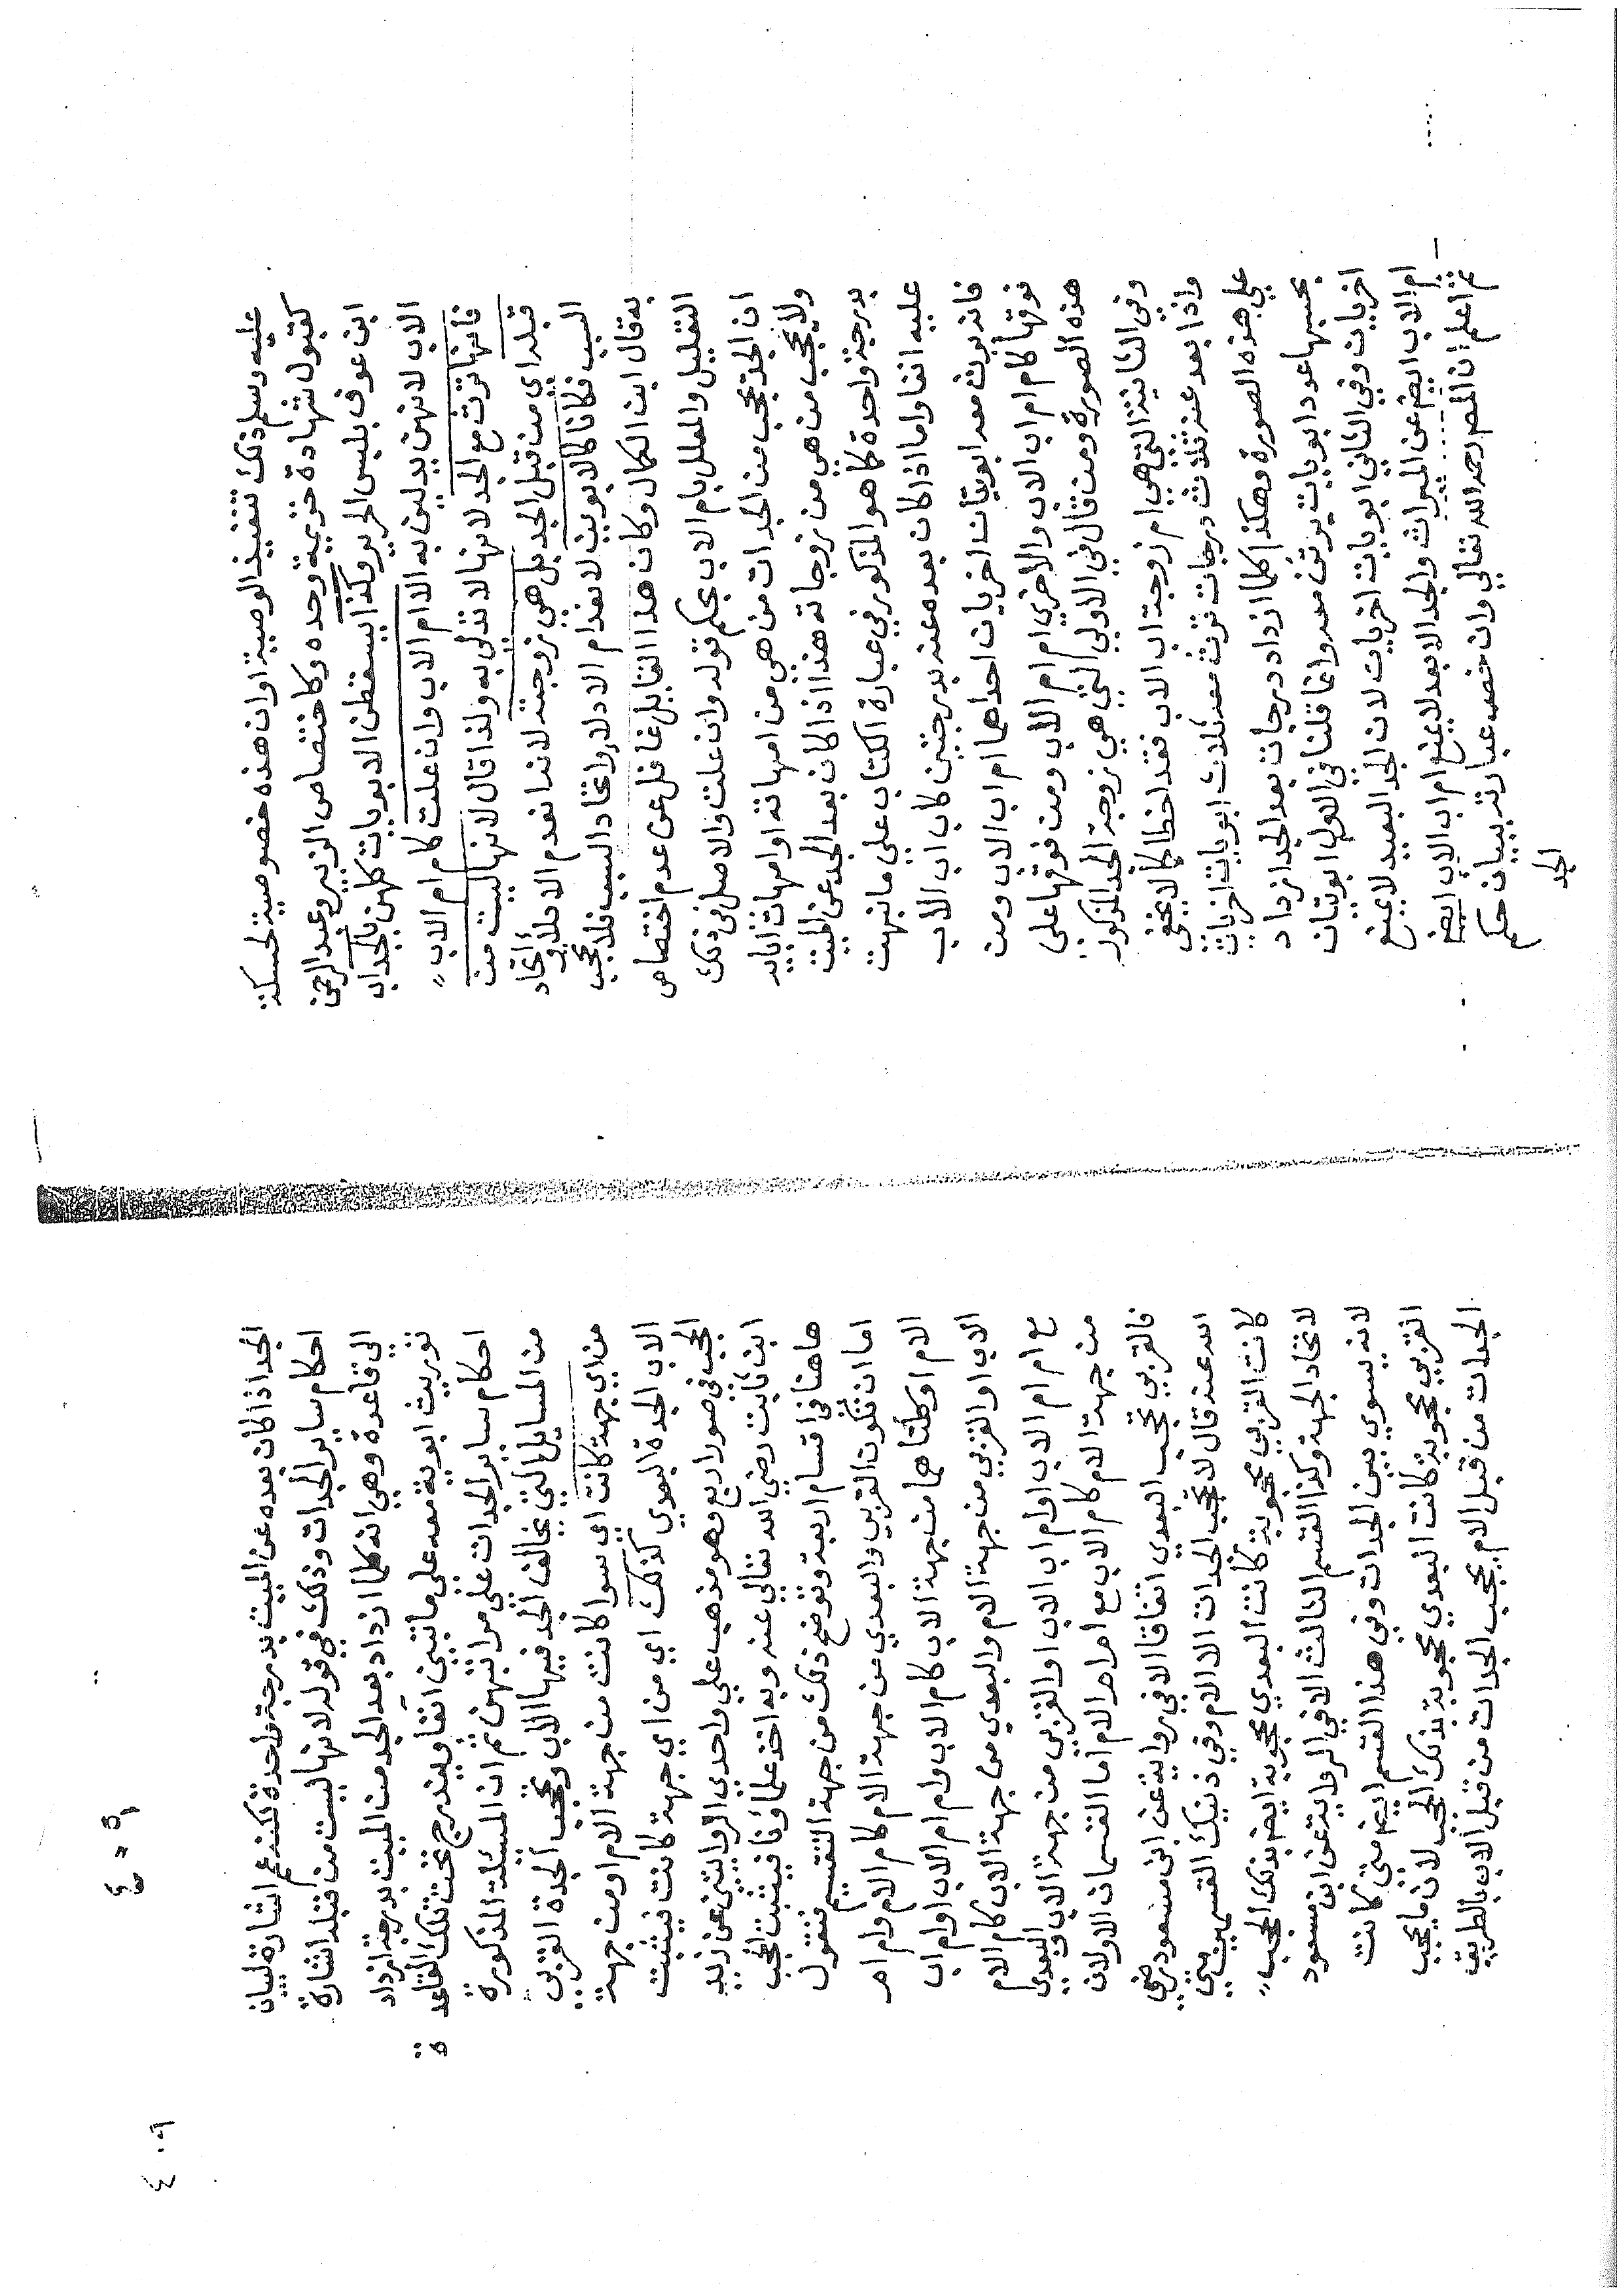 عليه وسلم ذلك تنفيذ الوصية او ان هذه خصوصية لمسكة
كقبول شهادة خزيمة وحده وكاختصاص الزبير وعبد الرحمن
ابن عوف بلبس الحرير وكذا يسقطن الابويات كلهن بالجد اب
الاب لانهن يدلين به الا ام الاب وان علت كام ام الاب
فانها ترث مع الجد لانها لا تدلي به ولذا قال لانها ليست من
قبله اي من قبل الجد بل هي زوجته لاننا نعدم الادلاء واتحاد
السبب فكانا كالابوين لانعدام الادلاء واتحاد السبب فلا يحجب
به قال ابن الكمال وكان هذا القايل غافل عن عدم اختصاص
التعليل والمعلل بام الاب بحكم قوله وان علت والاصل في ذلك
ان الجد يحجب من الجدات من هي من امهاته او امهات ابايه
ولا يحجب من هي من زوجاته هذا اذا كان بعد الجد عن الميت
بدرجة واحدة كما هو المذكور في عبارة الكتاب على ما نبهت
عليه انفا واما اذا كان بعده عنه بدرجتين كاب اب الاب
فانه يرث معه ابويتان اخريات احداهما ام اب الاب ومن
فوقها كام ام اب الاب والاخرى ام ام الاب ومن فوقها على
هذه الصورة ومن قال في الاولى التي هي زوجة الجد المذكور
وفي الثانية التي هي ام زوجة اب الاب فقد اخطا كما لا يخفى
واذا بعد عنه ثلاث درجات ترث معه ثلاث ابويات اخريات
على هذه الصورة وهكذا كلما ازداد درجات بعد الجد ازداد
بحسبها عود ابويات يرثن معه وانما قلنا في الاول ابويتان
اخريات وفي الثاني ابويات اخريات لان الجد البعيد لا يمنع
ام الاب ايضم عن الميراث والجد الابعد لا يمنع ام اب الاب ايضم
ثم اعلم ان المصم رحمه الله تعالى وان خصه عبارته ببيان حكم
الجد
٤٠٩
الجد اذا كان بعده عن الميت بدرجة واحدة لكنه عم اشارة لبيان
احكام ساير الجدات وذلك في قوله لانها ليست من قبله اشارة
الى قاعدة وهي انه كلما ازداد بعد الجد من الميت بدرجة ازداد
توريث ابوية معه على ما تبين انفا ويندرج تحت تلك القاعدة
احكام ساير الجدات على مراتبهن ثم ان المسيلة المذكورة
من المسايل التي يخالف الجد فيها الاب وتحجب الجدة القربى
من اي جهة كانت اي سوا كانت من جهة الام او من جهة
الاب الجدة البعدى كذلك اي من اي جهة كانت فيثبت
الحجب في صور اربع وهو مذهب علي واحدى الروايتين عن زيد
ابن ثابت رضي الله تعالى عنه وبه اخذ علماؤنا فيثبت الحجب
هاهنا في اقسام اربعة وتوضح ذلك من جهة التقسيم فنقول
اما ان تكون القربى والبعدى من جهة الام كام الام وام ام
الام او كلتاهما من جهة الاب كام الاب وام ام الاب او ام اب
الاب او القربى من جهة الام والبعدى من جهة الاب كام الام
مع ام ام الاب او ام اب الاب او القربى من جهة الاب والبعدى
من جهة الام كام الاب مع ام ام الام اما القسمان الاولان
فالقربى تحجب البعدى اتفاقا الا في رواية عن ابن مسعود رضي
الله عنه قال لا تحجب الجدات الا الام وفي ذينك القسمين متى
كانت القربى محجوبة كانت البعدى محجوبة ايضم بذلك الحجب
لاتحاد الجهة وكذا القسم الثالث الا في الرواية عن ابن مسعود
لانه يسوي بين الجدات وفي هذا القسم ايضم متى كانت
القربى محجوبة كانت البعدى محجوبة بذلك الحجب لان ما يحجب
الجدات من قبل الام يحجب الجدات من قبل الاب بالطريق